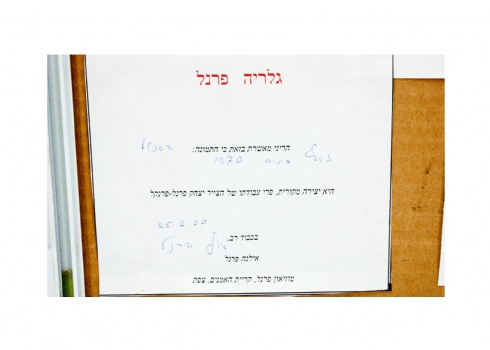 גלריה פרנל
הריני מאשרת בזאת כי התמונה:
1970
היא יצירה מקורית, פרי עבודתו של הצייר יצחק פרנל-פרנקל
25.2.00
בכבוד רב,
אילנה פרנל
מוזיאון פרנל, קריית האמנים, צפת